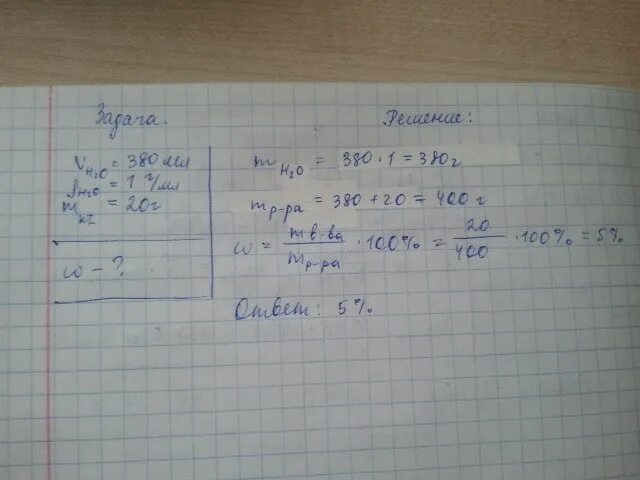 Задача.
V H2O = 380 мл
ρ H2O = 1 г/мл
m KI = 20г
ω - ?
Решение:
m H2O = 380 · 1 = 380г
m р-ра = 380 + 20 = 400 г
ω = m в-ва / m р-ра · 100% = 20 / 400 · 100% = 5%
Ответ: 5%